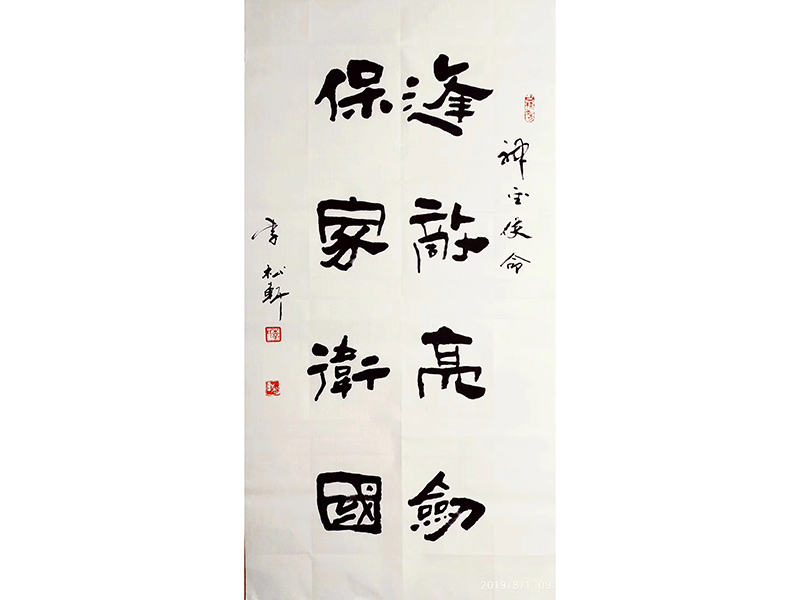 神圣使命
逢敵亮劍
保家衛國
李松軒
2019/8/1 09